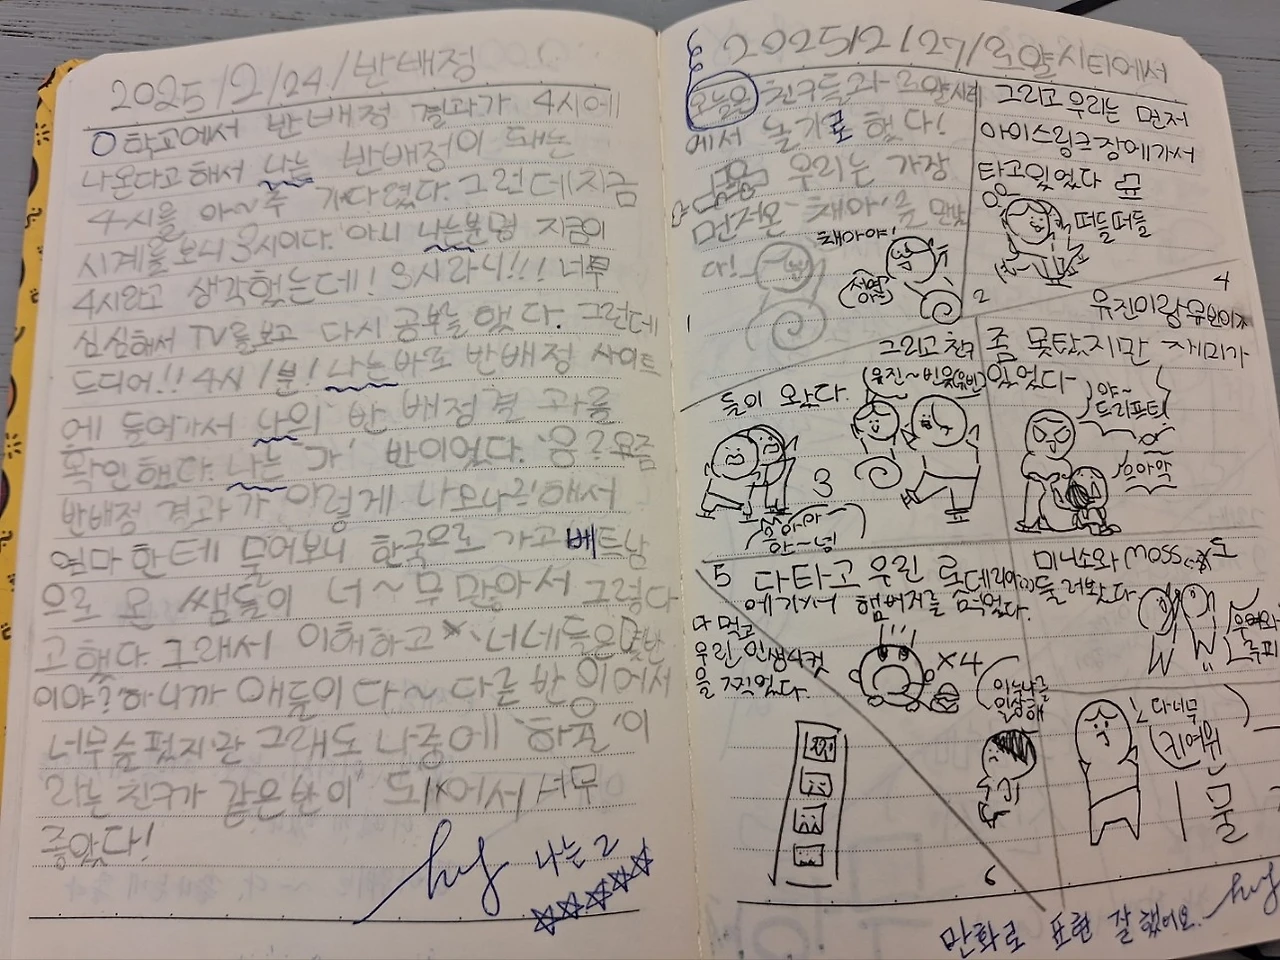 2025/2/24/반배정
학교에서 반배정 결과가 4시에
나온다고해서 나는 반배정이 돼는
4시을 아~주 기다렸다. 그런데 지금
시계를 보니 3시이다. 아니 나는분명 지금이
4시라고 생각했는데! 3시라니!!! 너무
심심해서 TV를보고 다시 공부를 했다. 그런데
드디어!! 4시 1분! 나는바로 반배정 사이트
에 들어가서 나의 반 배정결 과를
확인했다. 나는 '가' 반이었다. '응? 요즘
반배정 결과가 이렇게 나오나?'해서
엄마 한테 물어보니 한국으로 가고 베트남
으로 온 쌤들이 너~무 많아서 그렇다
고했다. 그래서 이해하고 너네들은몇반
이야? 하니까 애들이 다~ 다른 반 이어서
너무슬펐지만 그래도 나중에 '하율'이
라는 친구가 같은반이 되어서 너무
좋았다!
나는 2
2025/2/27/로얄시티에서
오늘은 친구들과 로얄시티
에서 놀기로 했다!
우리는 가장
먼저온 '채아'를 만났
다!
채아야!
1
그리고 우리는 먼저
아이스링크장에가서
타고있었다
떠들떠들
2
그리고 친구
들이 왔다.
3
4
유진이랑
좀 못탔지만 재미가
있었다~
야~
드리프트!
으아악
5
다타고 우린 롯데리아
에가서 햄버거를 먹었다.
x4
다 먹고
우린 인생4컷
을 찍었다.
6
미니소와 moss 도
둘러봤다
다너무
키여워
만화로 표현 잘 했어요.